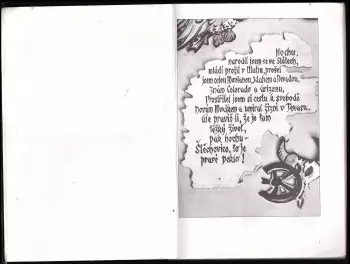 Hochu,
narodil jsem se ve Státech,
mládí prožil v Utahu, prošel
jsem celou Montanou, Idahem a Nevadou.
Znám Colorado a Arizonu,
Prostřílel jsem si cestu k svobodě
Novým Mexikem a umíral žízní v Texasu.
Ale pravíš-li, že je tam
těžký život,
pak hochu -
Štěchovice, to je
pravé peklo!